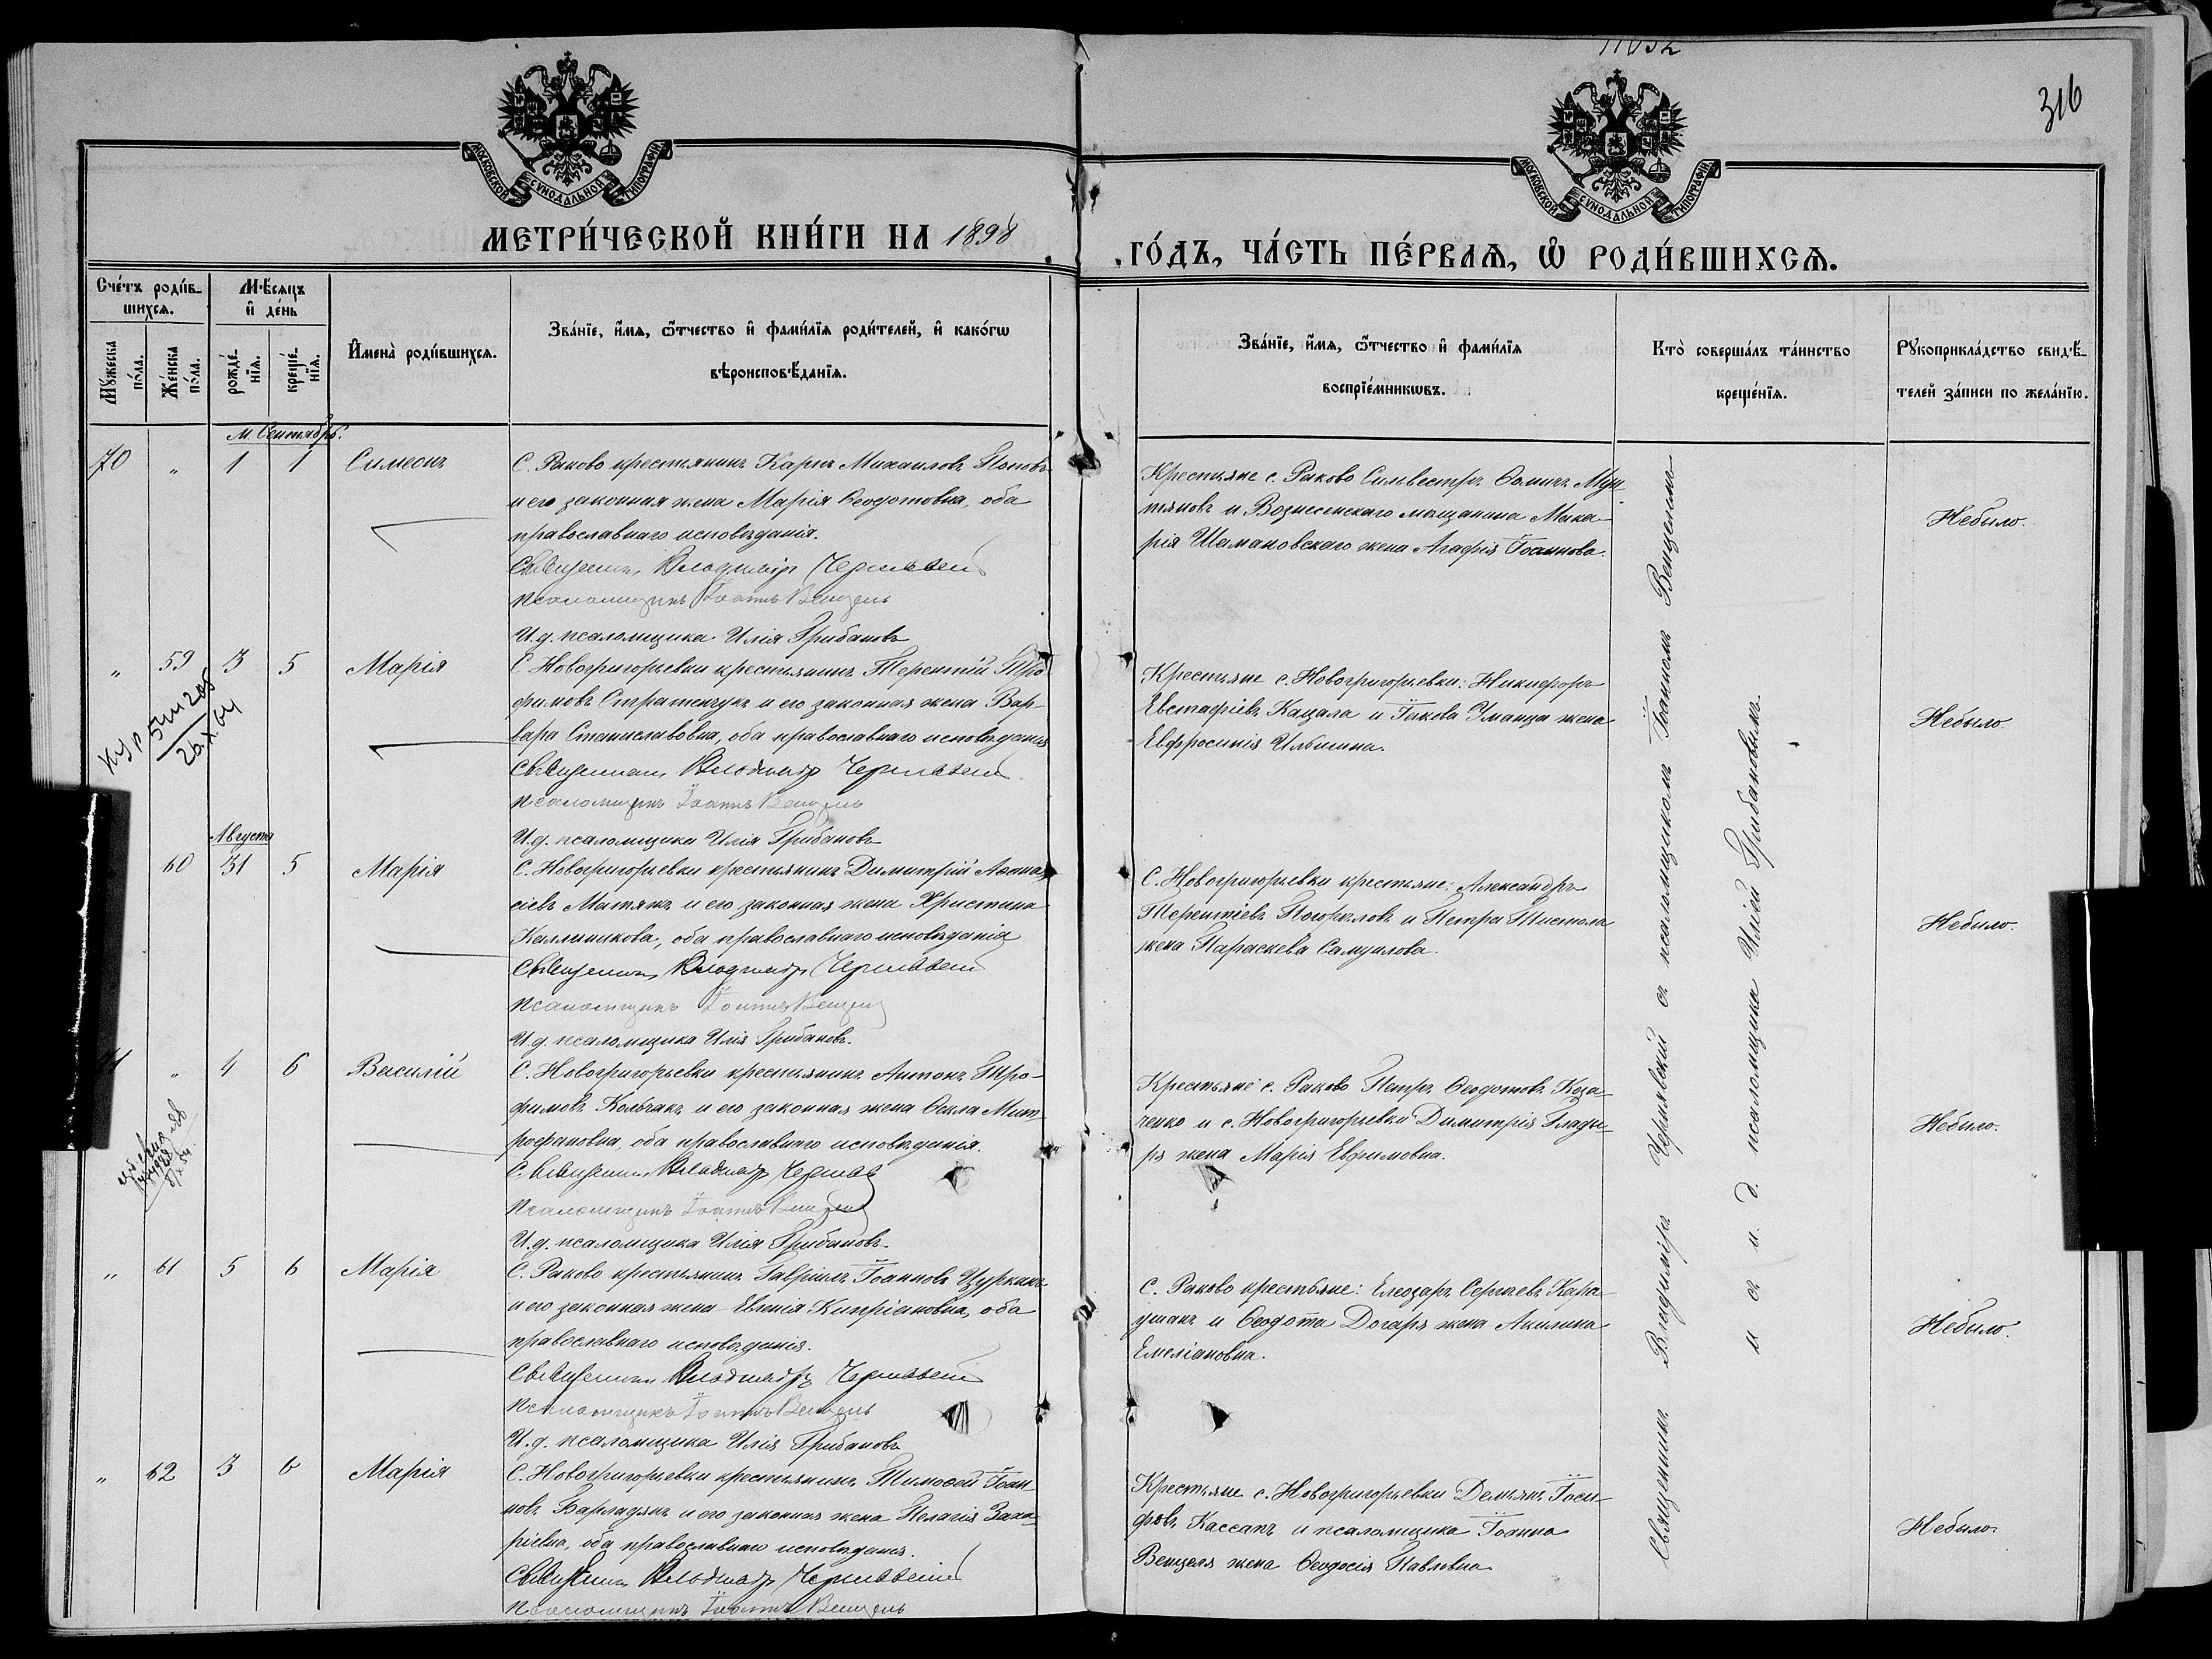 316
МОСКОВСКОЙ СѴНОДАЛЬНОЙ ТИПОГРАФІИ
МОСКОВСКОЙ СѴНОДАЛЬНОЙ ТИПОГРАФІИ
МЕТРИ́ЧЕСКОЙ КНИ́ГИ НА 1898
ГО́ДЪ, ЧА́СТЬ ПЕ́РВАѦ, Ѡ҆ РОДИ́ВШИХСѦ.
Сче́тъ роди́в-
шихсѧ.
Мѣ́сѧцъ
и҆ де́нь
Мꙋ́жеска
по́ла.
Же́нска
по́ла.
рожде́-
нїѧ.
креще́-
нїѧ.
И҆мена̀ роди́вшихсѧ.
Зва́нїе, и҆́мѧ, ѻ҆́тчество и҆ фами́лїѧ роди́телей, и҆ како́гѡ
вѣроисповѣ́данїѧ.
Зва́нїе, и҆́мѧ, ѻ҆́тчество и҆ фами́лїѧ
воспрїе́мникѡвъ.
Кто̀ соверша́лъ та́инство
креще́нїѧ.
Рꙋкоприкла́дство свидѣ́-
телей за́писи по жела́нїю.
м. Сентябрь.
70 „ 1 1 Симеонъ
С. Раково крестьянинъ Карпъ Михаиловъ Поповъ
и его законная жена Марія Ѳеодотовна, оба
православнаго исповѣданія.
Священникъ Владиміръ Чернявскій
Псаломщикъ Іоаннъ Венцель
И. д. псаломщика Илія Грибановъ
Крестьяне с. Раково Сильвестръ Ѳоминъ Мун-
тяновъ и Вознесенскаго мѣщанина Мака-
рія Шемановскаго жена Агафія Іоаннова.
Небыло.
„ 59 3 5 Марія
С. Новогригорьевки крестьянинъ Терентій Тро-
фимовъ Стратенчукъ и его законная жена Вар-
вара Станиславовна, оба православнаго исповѣданія
Священникъ Владиміръ Чернявскій
Псаломщикъ Іоаннъ Венцель
И. д. псаломщика Илія Грибановъ
Крестьяне с. Новогригорьевки: Никифоръ
Евстафіевъ Кацала и Іакова Уманца жена
Евфросинія Ильина.
Небыло.
26.X.64
Августа
60 31 5 Марія
С. Новогригорьевки крестьянинъ Димитрій Аѳана-
сіевъ Матяжъ и его законная жена Христина
Каллиникова, оба православнаго исповѣданія
Священникъ Владиміръ Чернявскій
Псаломщикъ Іоаннъ Венцель
И. д. псаломщика Илія Грибановъ.
С. Новогригорьевки крестьяне: Александръ
Терентіевъ Погорѣловъ и Петра Тистола
жена Параскева Самуилова.
Небыло.
71 „ 4 6 Василій
С. Новогригорьевки крестьянинъ Антонъ Тро-
фимовъ Колчакъ и его законная жена Ѳекла Мит-
рофановна, оба православнаго исповѣданія.
Священникъ Владиміръ Чернявскій
Псаломщикъ Іоаннъ Венцель
И. д. псаломщика Илія Грибановъ
Крестьяне с. Раково Петръ Ѳеодотовъ Коза-
ченко и с. Новогригорьевки Димитрія Глады-
ря жена Марія Евфимовна.
Небыло.
„ 61 5 6 Марія
С. Раково крестьянинъ Гавріилъ Іоанновъ Цурканъ
и его законная жена Евгенія Кипріановна, оба
православнаго исповѣданія.
Священникъ Владиміръ Чернявскій
Псаломщикъ Іоаннъ Венцель
И. д. псаломщика Илія Грибановъ
С. Раково крестьяне: Елеазаръ Сергіевъ Кара-
ушанъ и Ѳеодота Догаря жена Акилина
Емеліановна.
Небыло.
„ 62 3 6 Марія
С. Новогригорьевки крестьянинъ Тимоѳей Іоан-
новъ Барладянъ и его законная жена Пелагія Заха-
ріевна, оба православнаго исповѣданія.
Священникъ Владиміръ Чернявскій
Псаломщикъ Іоаннъ Венцель
Крестьяне с. Новогригорьевки Демьянъ Іоси-
фовъ Кассапъ и псаломщика Іоанна
Венцеля жена Ѳеодосія Павловна
Небыло.
Священникъ Владиміръ Чернявскій съ псаломщикомъ Іоанномъ Венцелемъ
и съ и. д. псаломщика Иліей Грибановымъ.